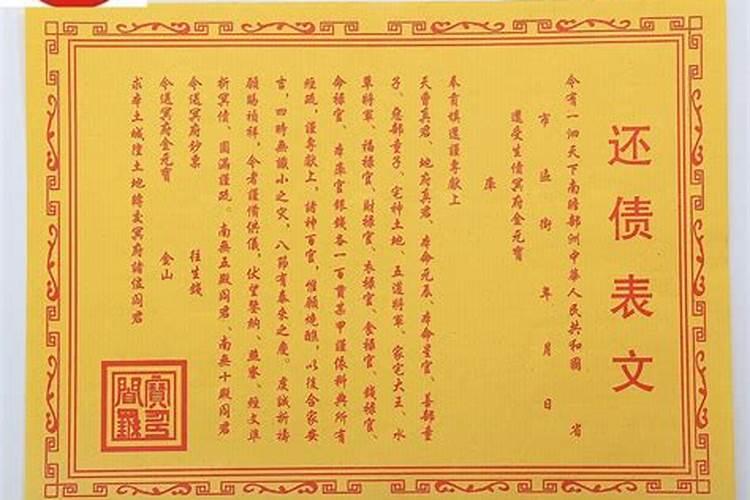 还债表文
今有一泗天下南瞻部洲中華人民共和國 省
市 區 街 年 月 日
還受生債冥府金元寶
庫
奉肯填還謹專献上
天曹真君、地府真君、本命元辰、本命星官、善部童
子、惡部童子、宅神土地、五道將軍、家宅大王、水
草將軍、福禄官、財禄官、衣禄官、食禄官、錢禄官、
命禄官、本庫官銀錢各一百貫某甲謹依科典所有
經疏，謹專献上，諸神百官，惟願燒醮，以後合家安
吉，四時無識小之灾，八節有泰來之慶。虔誠祈禱
願賜禎祥，令者謹備供儀，伏望鑒納、燕寮、經文準
折冥債、圓滿謹疏。南無五殿阎君、南無十殿阎君
今送冥府鈔票 往生錢
今送冥府金元寶 金山
求本土城隍土地轉交冥府諸位阎君